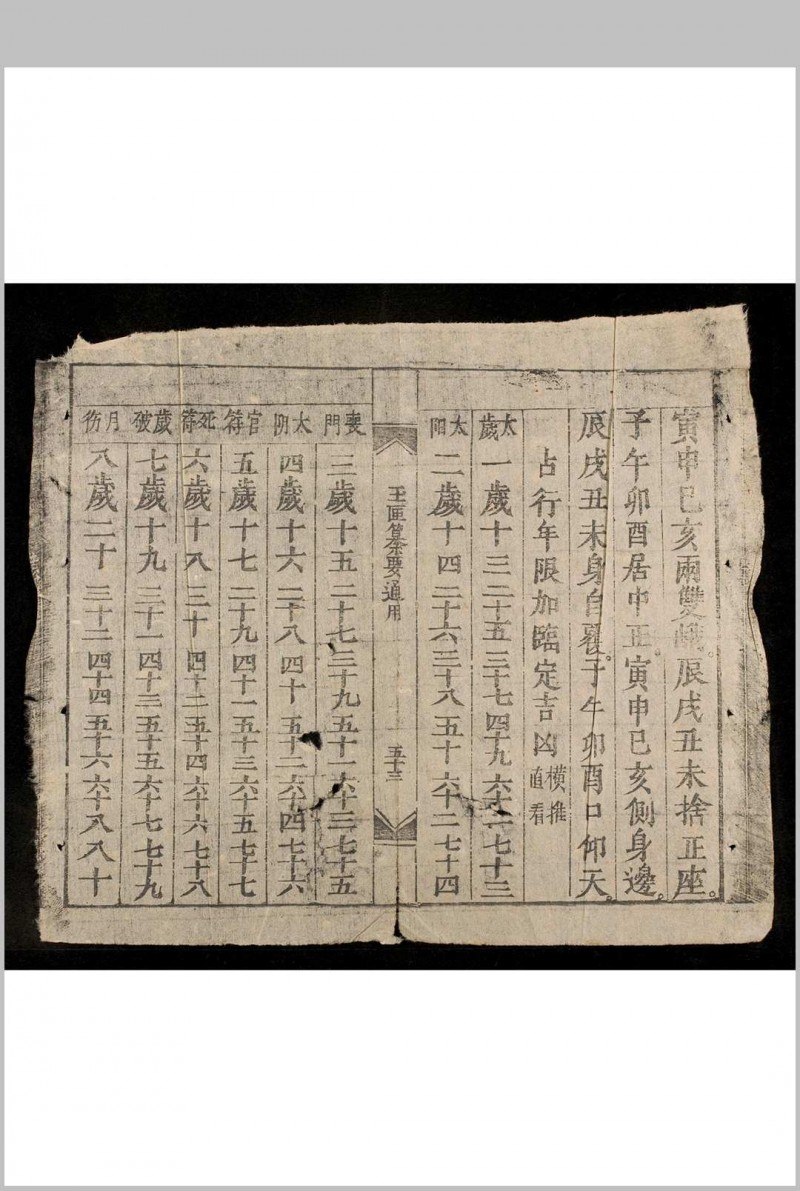 寅申巳亥兩雙峨。辰戌丑未捨正座。
子午卯酉居中正。寅申巳亥側身邊。
辰戌丑未身自覆。子午卯酉口仰天。
占行年限加臨定吉凶橫推直看
太歲 一歲十三二十五三十七四十九六十一七十三
太阳 二歲十四二十六三十八五十六十二七十四
玉匣纂要通用 五十三
喪門 三歲十五二十七三十九五十一六十三七十五
太阴 四歲十六二十八四十五十二六十四七十六
官符 五歲十七二十九四十一五十三六十五七十七
死符 六歲十八三十四十二五十四六十六七十八
歲破 七歲十九三十一四十三五十五六十七七十九
月伤 八歲二十三十二四十四五十六六十八八十